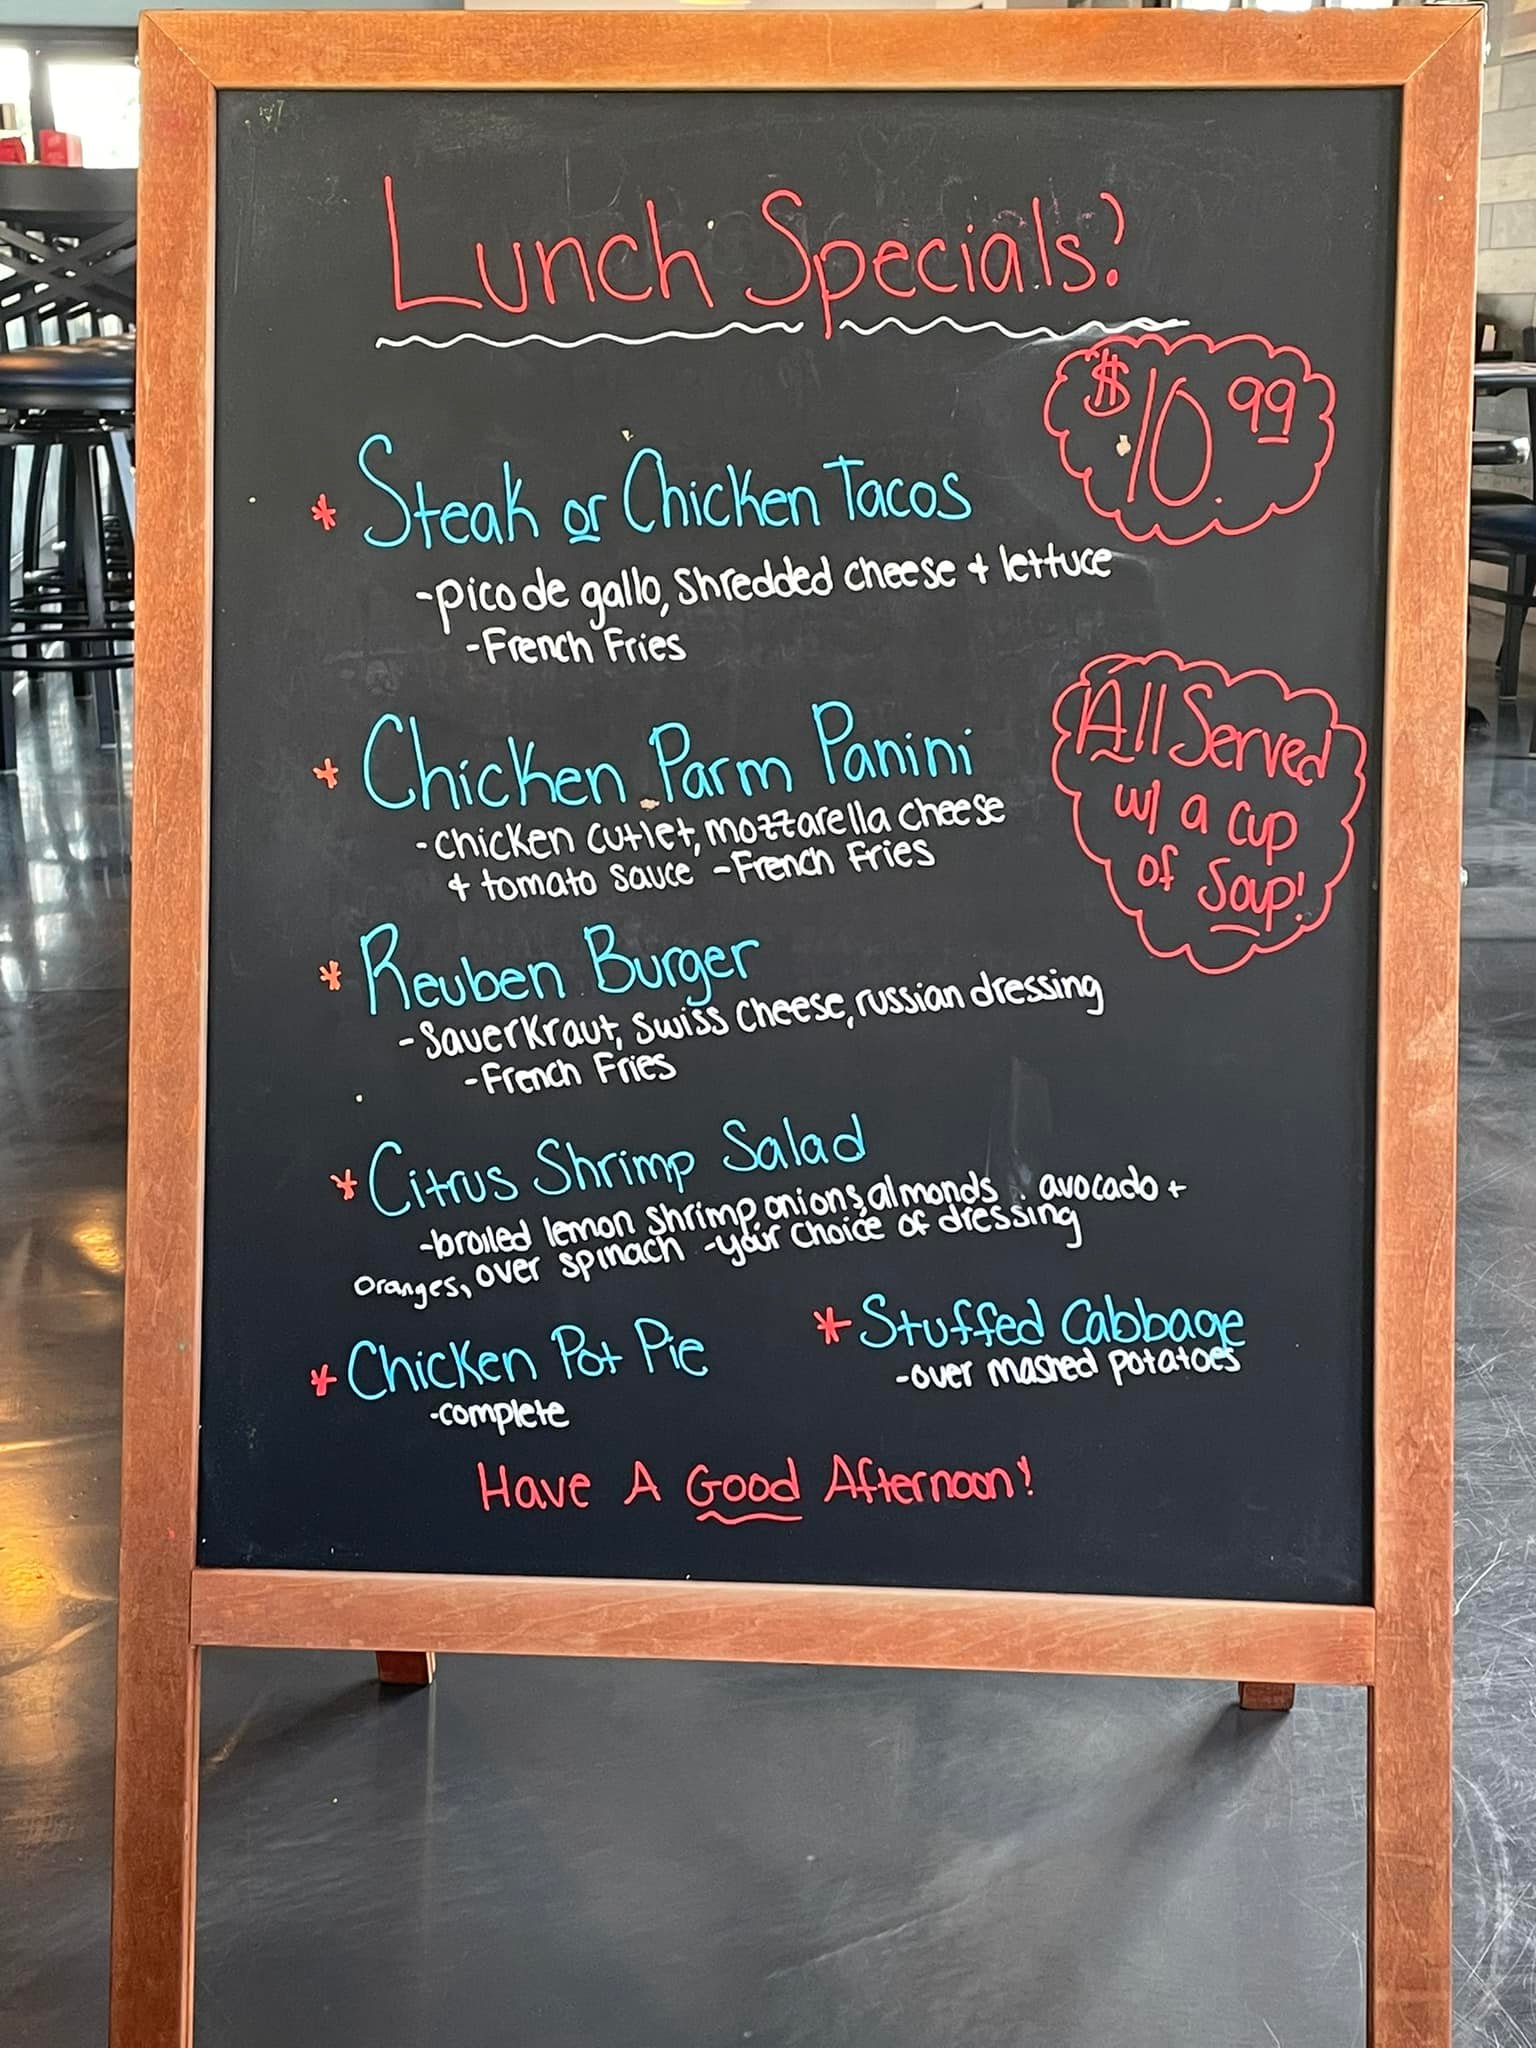 Lunch Specials!
$10.99
* Steak or Chicken Tacos
-pico de gallo, shredded cheese + lettuce
-French Fries
All Served
w/ a cup
of Soup!
* Chicken Parm Panini
-chicken cutlet, mozzarella cheese
+ tomato sauce -French Fries
* Reuben Burger
-Sauerkraut, swiss cheese, russian dressing
-French Fries
* Citrus Shrimp Salad
-broiled lemon shrimp, onions, almonds, avocado +
oranges, over spinach -your choice of dressing
* Chicken Pot Pie
-complete
* Stuffed Cabbage
-over mashed potatoes
Have A Good Afternoon!